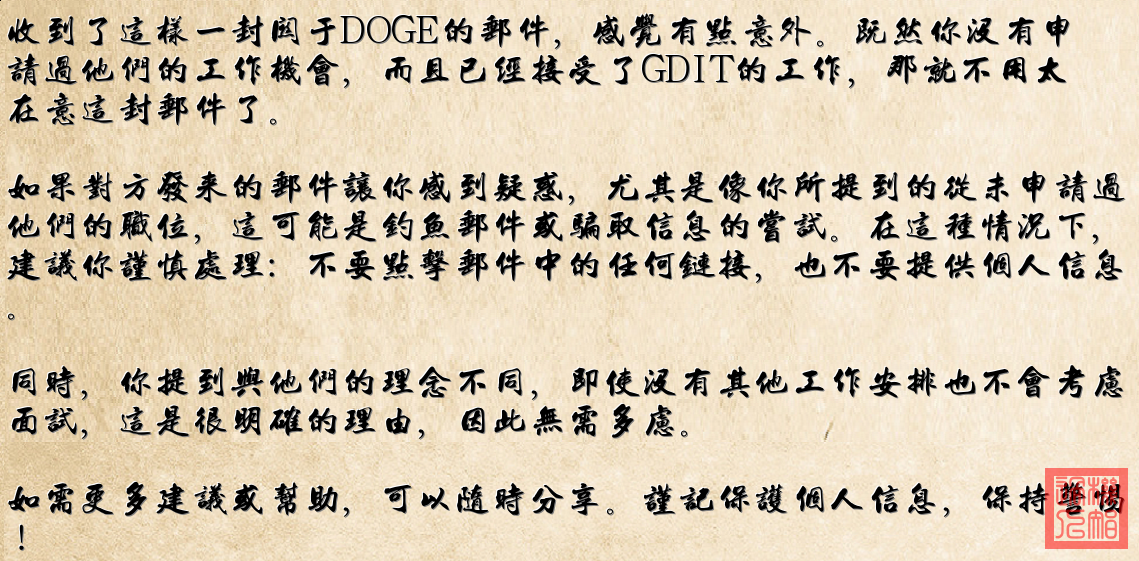 收到了這樣一封関于DOGE的郵件，感覺有點意外。既然你沒有申
請過他們的工作機會，而且已經接受了GDIT的工作，那就不用太
在意這封郵件了。
如果對方發來的郵件讓你感到疑惑，尤其是像你所提到的從未申請過
他們的職位，這可能是釣魚郵件或騙取信息的嘗試。在這種情況下，
建議你謹慎處理：不要點擊郵件中的任何鏈接，也不要提供個人信息
。
同時，你提到與他們的理念不同，即使沒有其他工作安排也不會考慮
面試，這是很明確的理由，因此無需多慮。
如需更多建議或幫助，可以隨時分享。謹記保護個人信息，保持警惕
！